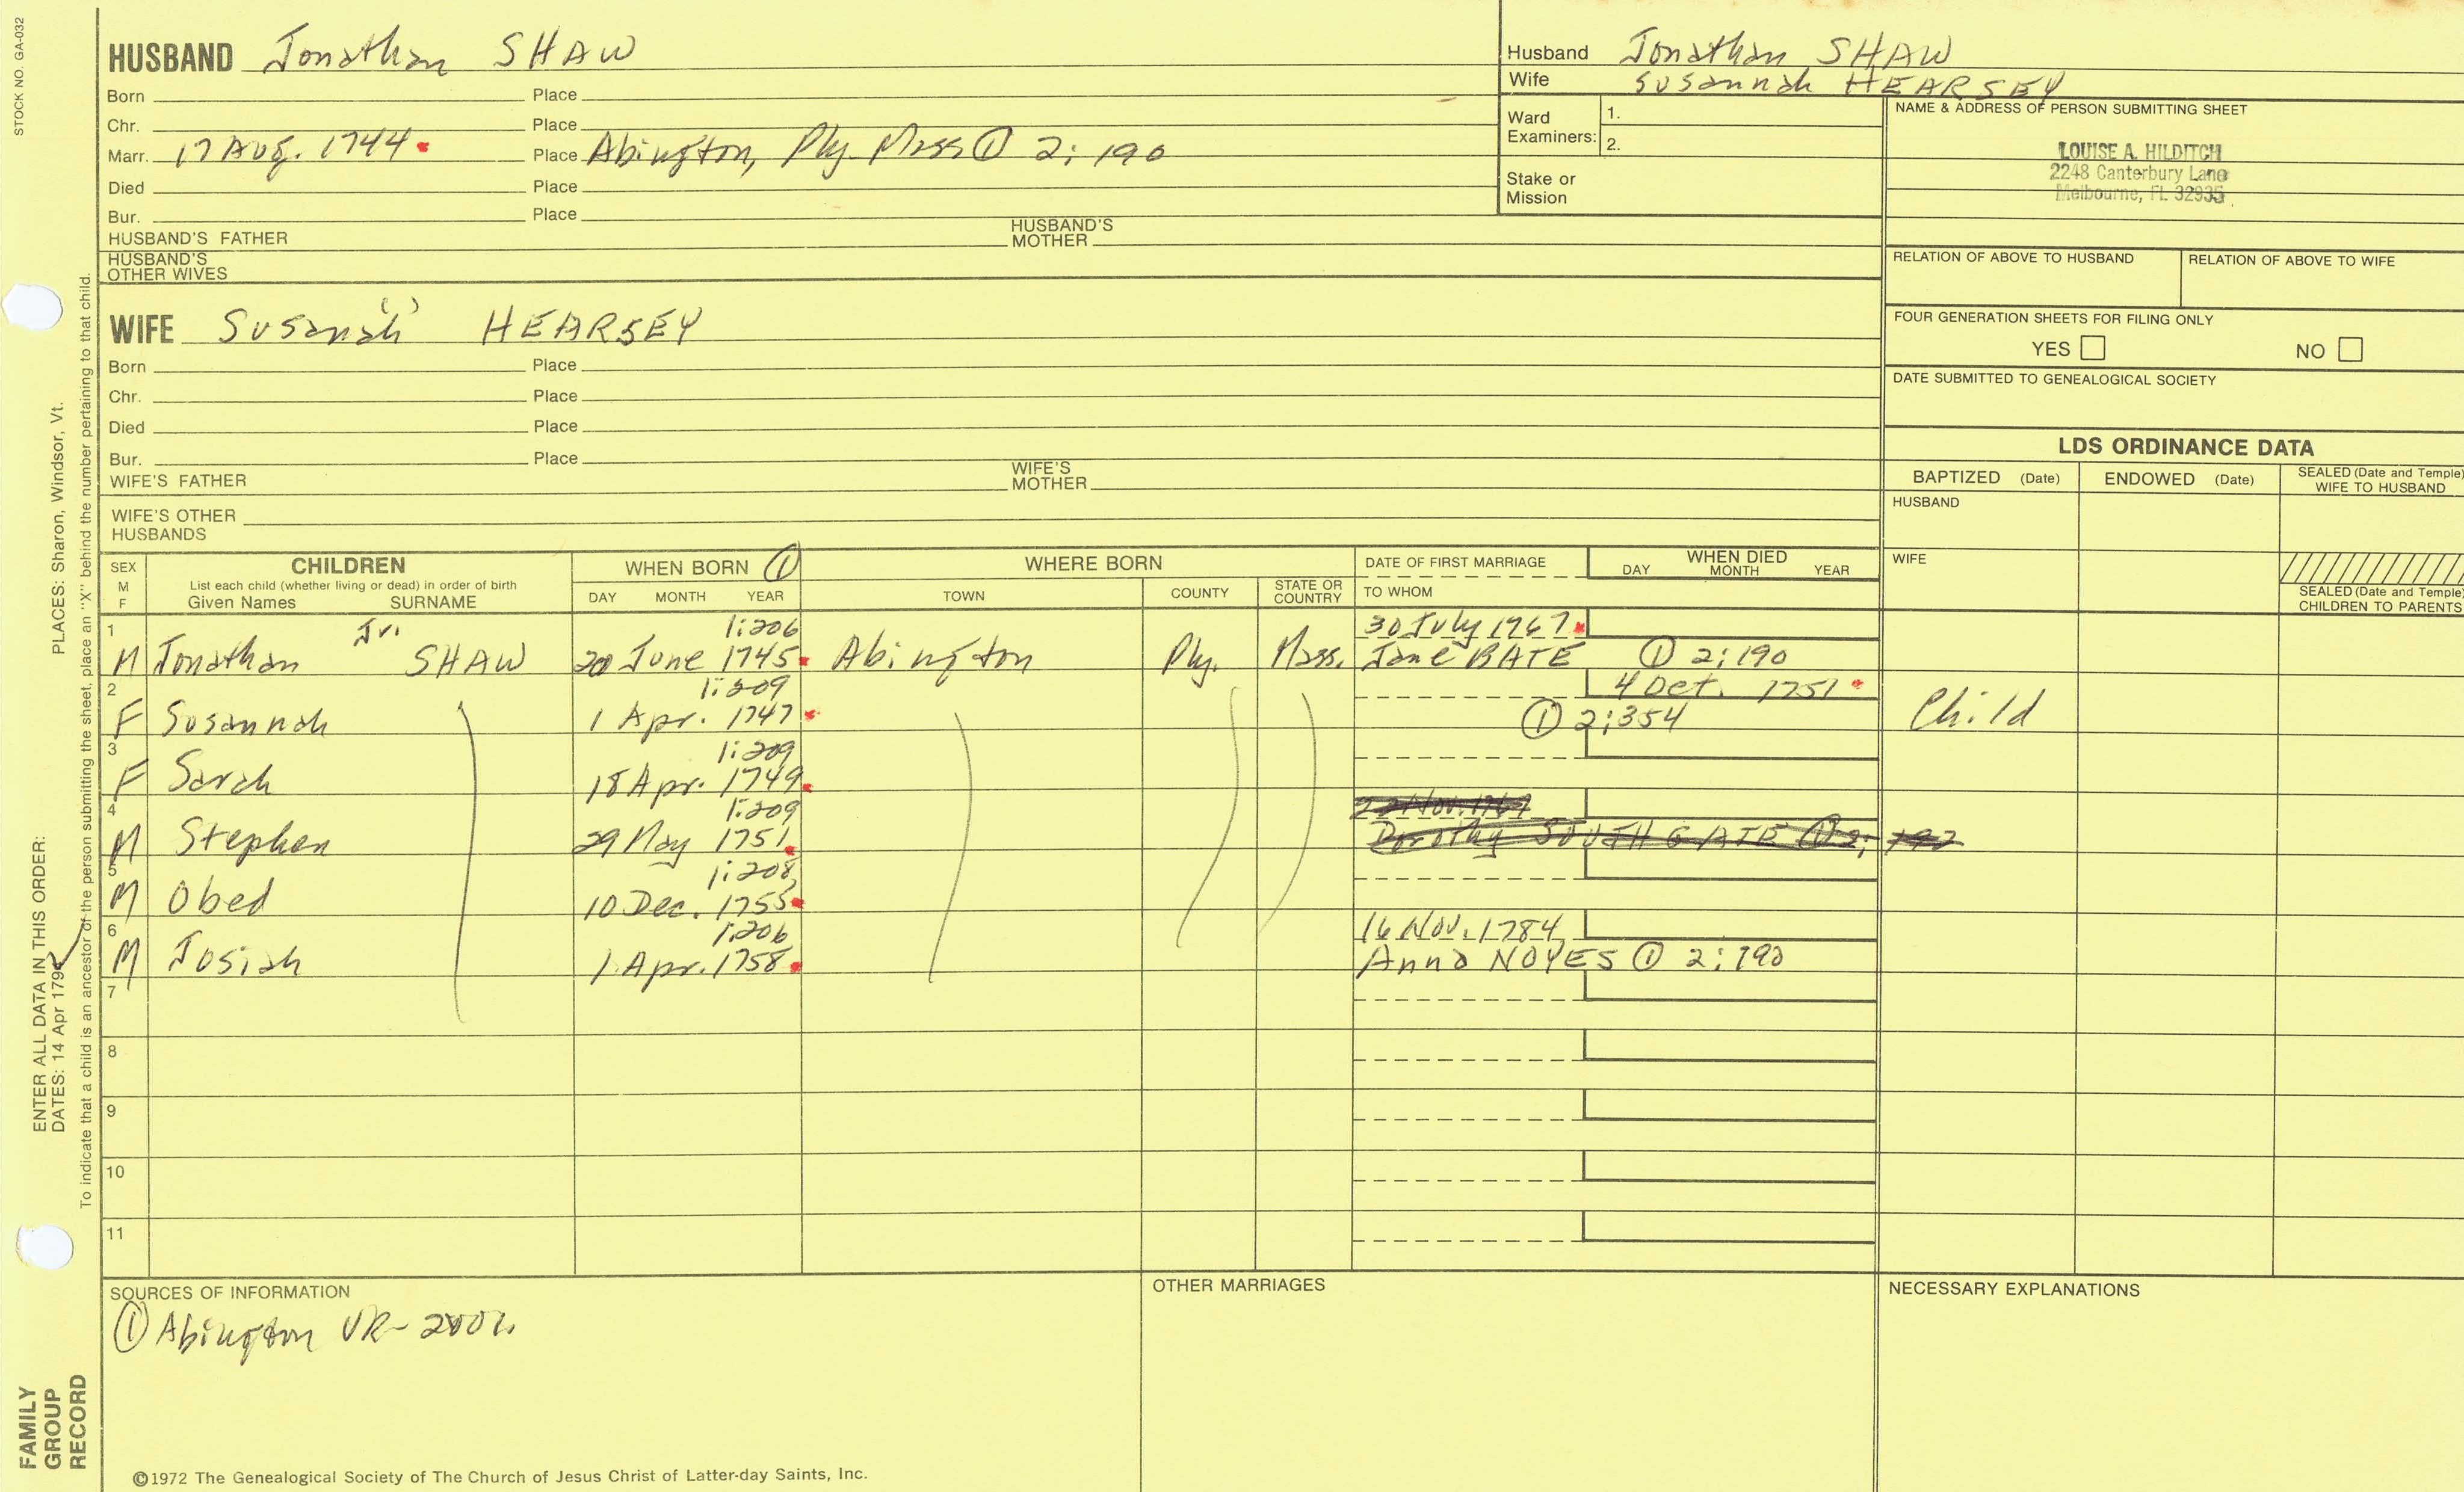 STOCK NO. GA-032
HUSBAND Jonathan SHAW
Born Place
Chr. Place
Marr. 17 Aug. 1744 Place Abington, Ply. Mass ① 2:190
Died Place
Bur. Place
HUSBAND'S FATHER HUSBAND'S MOTHER
HUSBAND'S OTHER WIVES
Husband Jonathan SHAW
Wife Susannah HEARSEY
Ward Examiners: 1.
2.
Stake or Mission
NAME & ADDRESS OF PERSON SUBMITTING SHEET
LOUISE A. HILDITCH
2248 Canterbury Lane
Melbourne, FL 32935
RELATION OF ABOVE TO HUSBAND RELATION OF ABOVE TO WIFE
FOUR GENERATION SHEETS FOR FILING ONLY
YES NO
DATE SUBMITTED TO GENEALOGICAL SOCIETY
WIFE Susanah HEARSEY
Born Place
Chr. Place
Died Place
Bur. Place
WIFE'S FATHER WIFE'S MOTHER
WIFE'S OTHER HUSBANDS
LDS ORDINANCE DATA
BAPTIZED (Date) ENDOWED (Date) SEALED (Date and Temple) WIFE TO HUSBAND
HUSBAND
WIFE
SEALED (Date and Temple) CHILDREN TO PARENTS
SEX M F
CHILDREN
List each child (whether living or dead) in order of birth
Given Names SURNAME
WHEN BORN ①
DAY MONTH YEAR
WHERE BORN
TOWN COUNTY STATE OR COUNTRY
DATE OF FIRST MARRIAGE
TO WHOM
WHEN DIED
DAY MONTH YEAR
1 Jr. 1:206 30 July 1767
M Jonathan SHAW 20 June 1745 Abington Ply. Mass. Jane BATE ① 2:190
2 1:209 4 Oct. 1751
F Susannah 1 Apr. 1747 ① 2:354 Child
3 1:209
F Sarah 18 Apr. 1749
4 1:209 22 Nov. 1769
M Stephen 29 May 1751 Dorothy SOUTHGATE ① 2: 192
5 1:208
M Obed 10 Dec. 1755
6 1:206 16 Nov. 1784
M Josiah 1 Apr. 1758 Anna NOYES ① 2:190
7
8
9
10
11
SOURCES OF INFORMATION
① Abington VR-
OTHER MARRIAGES
NECESSARY EXPLANATIONS
©1972 The Genealogical Society of The Church of Jesus Christ of Latter-day Saints, Inc.
FAMILY GROUP RECORD
ENTER ALL DATA IN THIS ORDER:
DATES: 14 Apr 1794
PLACES: Sharon, Windsor, Vt.
To indicate that a child is an ancestor of the person submitting the sheet, place an "X" behind the number pertaining to that child.